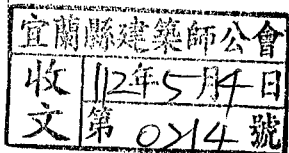 宜蘭縣建築師公會
收文
112年5月4日
第0214號